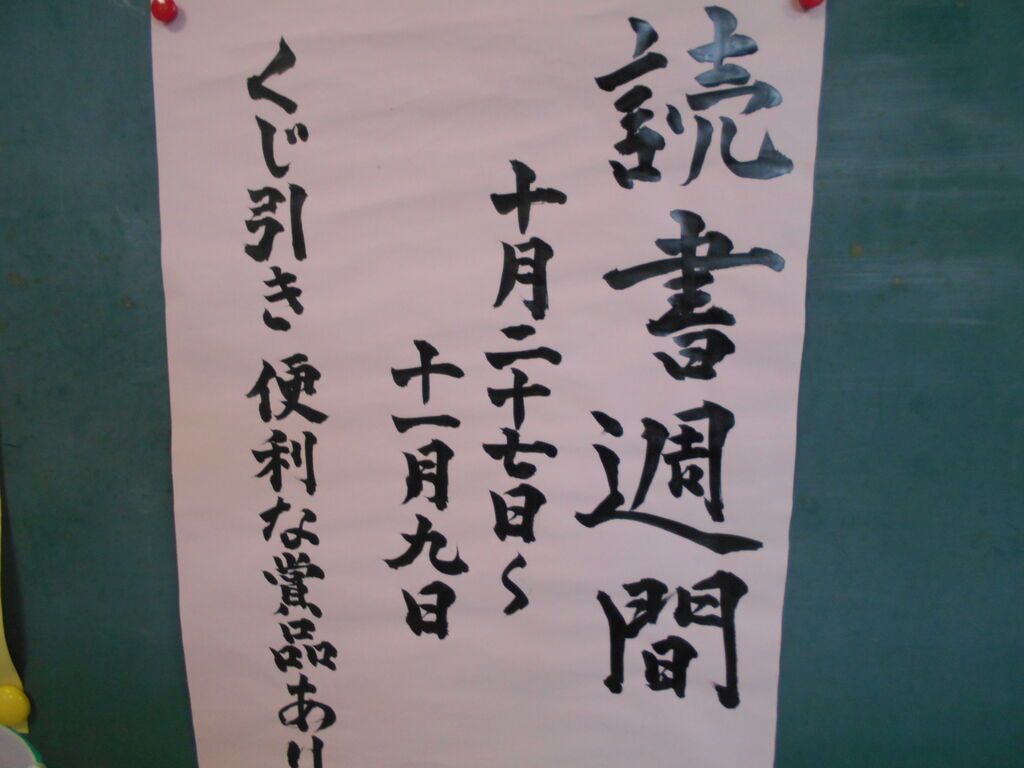 読書週間
十月二十七日～
十一月九日
くじ引き 便利な賞品あり